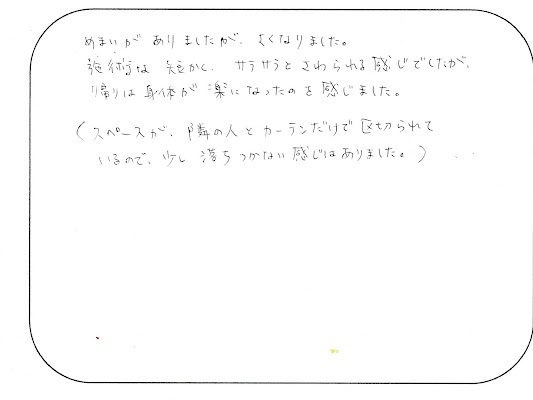 めまいがありましたが、よくなりました。
施術は短かく、サラサラとさわられる感じでしたが、
帰りは身体が楽になったのを感じました。
(スペースが、隣の人とカーテンだけで区切られて
いるので、少し落ちつかない感じはありました。)